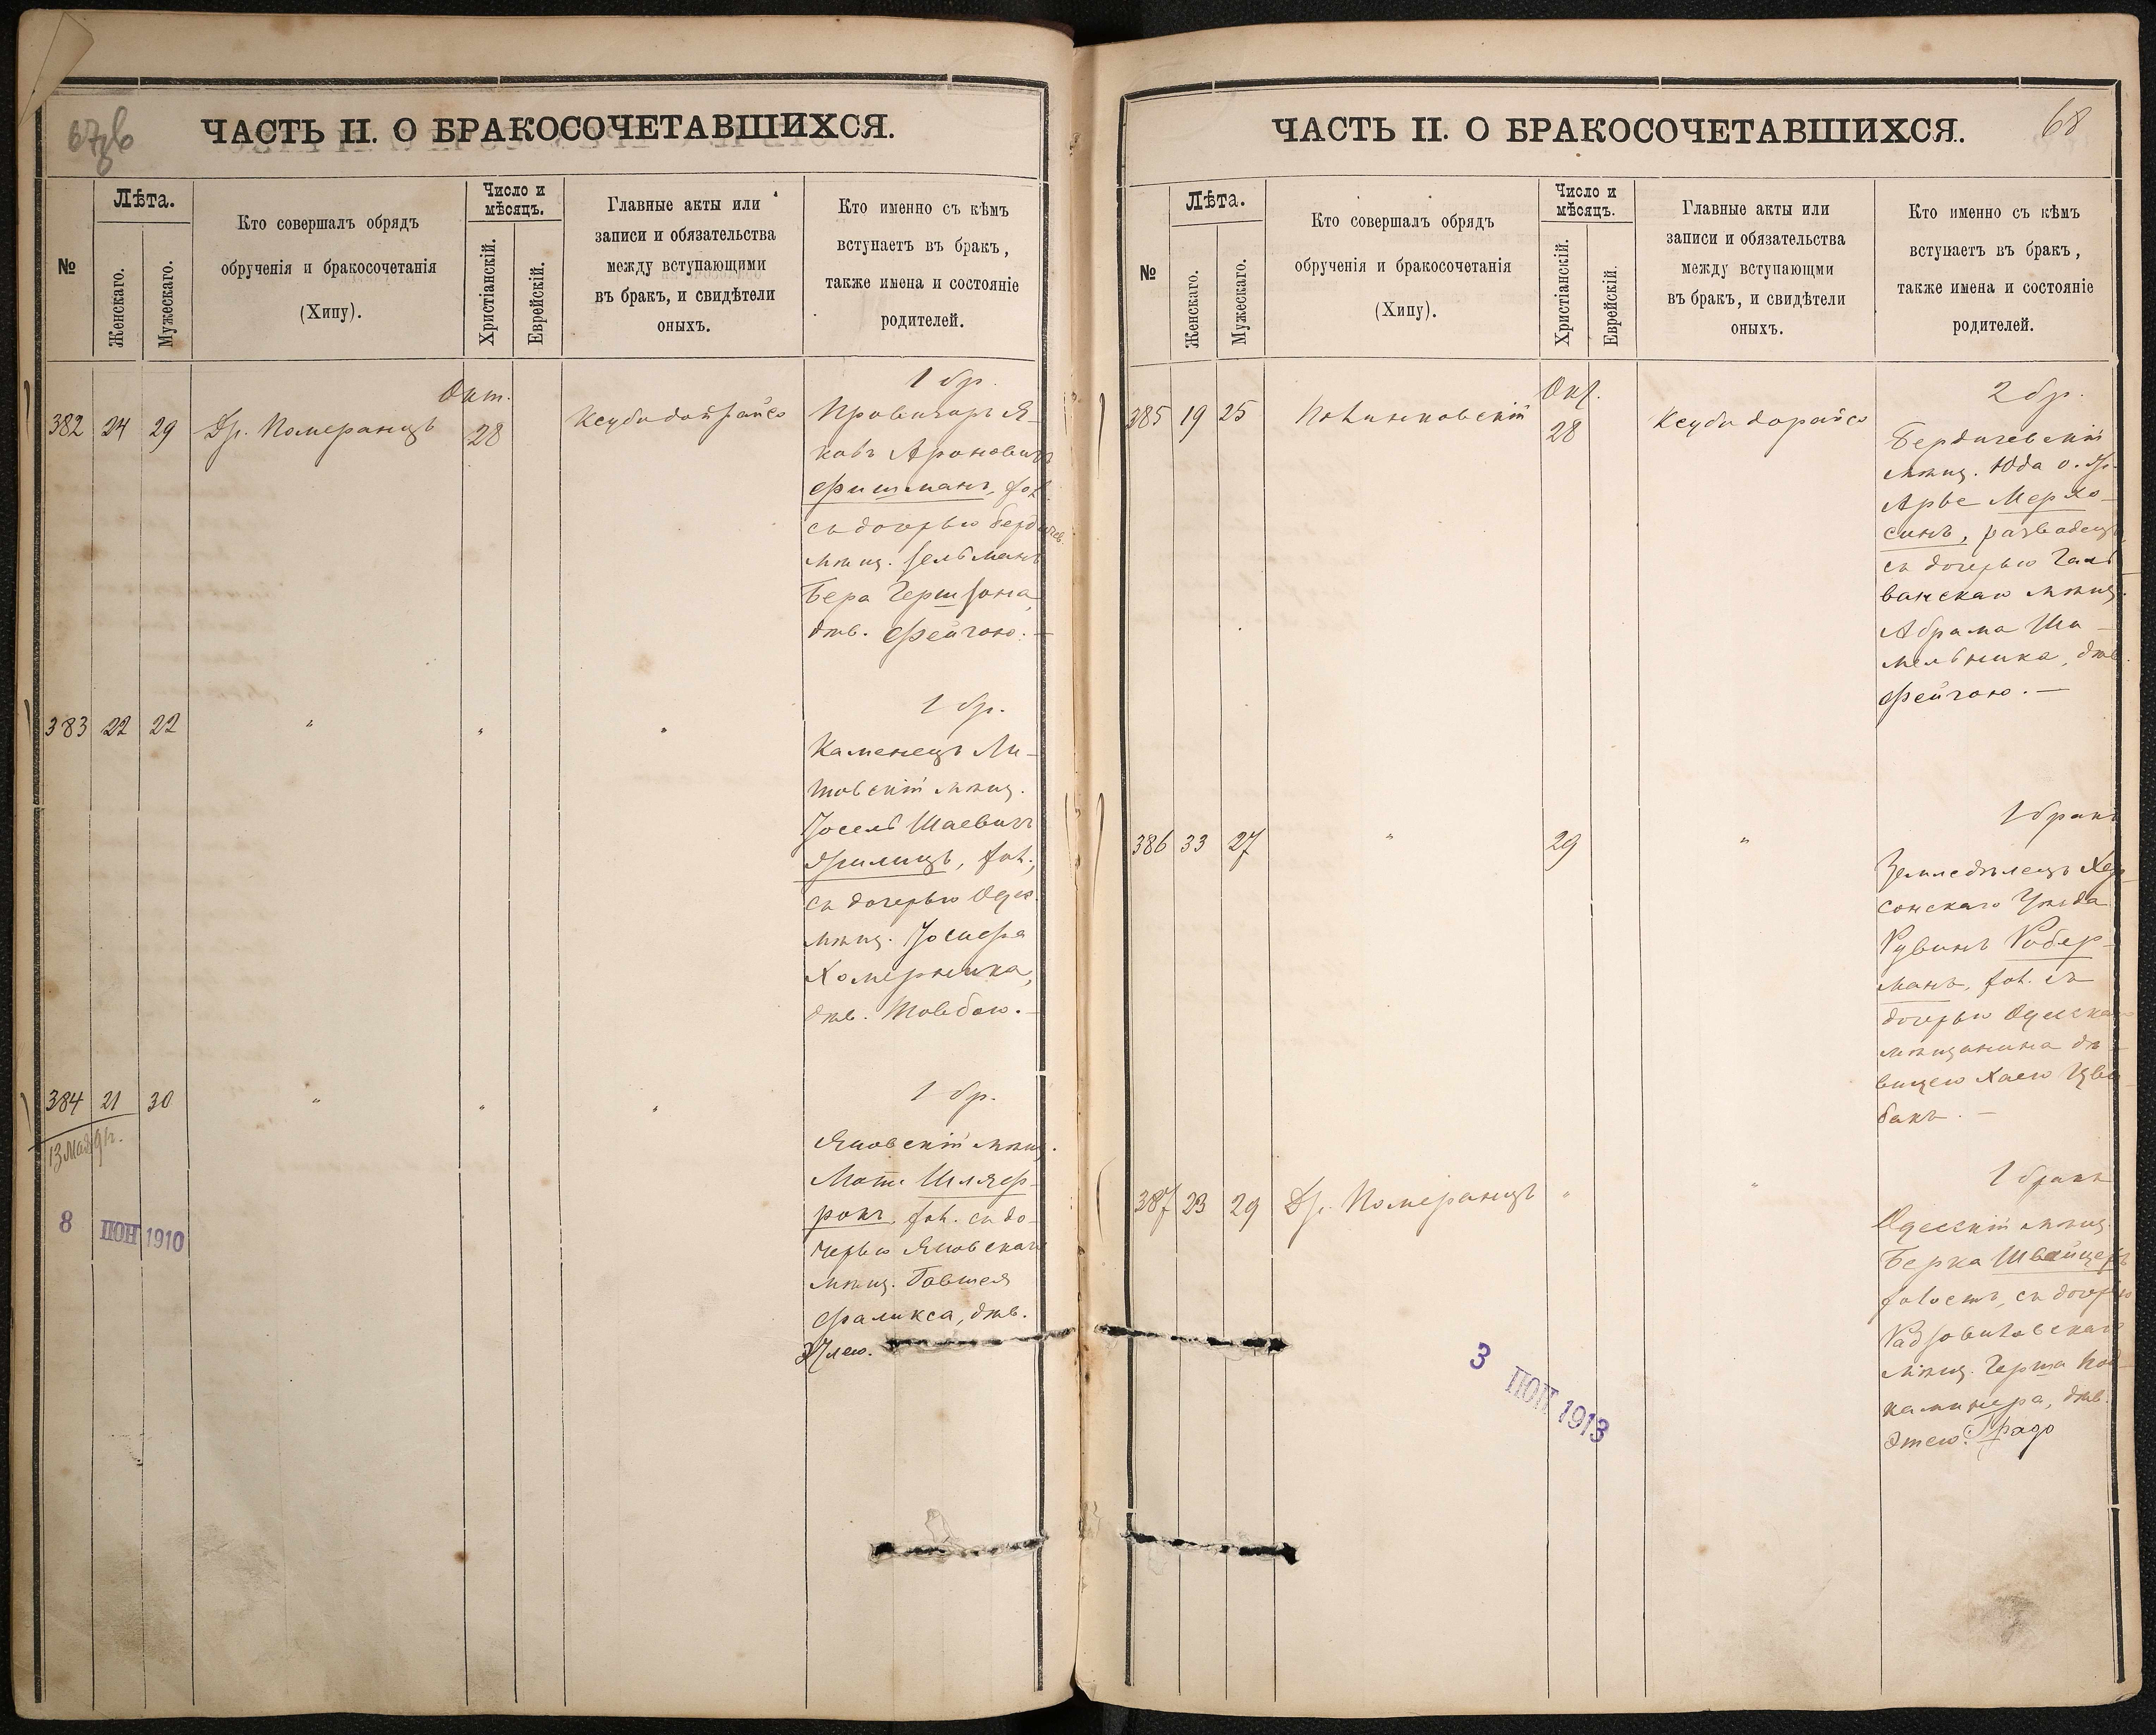 67 об
ЧАСТЬ II. О БРАКОСОЧЕТАВШИХСЯ.
№
Лѣта.
Женскаго.
Мужескаго.
Кто совершалъ обрядъ
обрученія и бракосочетанія
(Хипу).
Число и
мѣсяцъ.
Христіанскій.
Еврейскій.
Главные акты или
записи и обязательства
между вступающими
въ бракъ, и свидѣтели
оныхъ.
Кто именно съ кѣмъ
вступаетъ въ бракъ,
также имена и состояніе
родителей.
Окт.
382 24 29 Др. Померанцъ 28
1 бр.
Провизоръ Я-
ковъ Ароновичъ
Фишманъ, хол.
съ дочерью Бердичев.
мѣщ. Зельманъ
Бера Гершзона,
дѣв. Фейгою. —
383 22 22 " " "
1 бр.
Каменецъ Ли-
товскій мѣщ.
Іосель Шаевичъ
съ дочерью Одес.
мѣщ. Іосифа
Хомерника,
дѣв. Товбою. —
384 21 30 " " "
13 Мая
8 ІЮН 1910
1 бр.
Яновскій мѣщ.
Шляф-
хол. съ до-
черью Яновскаго
мѣщ.
Фаликса, дѣв.
ЧАСТЬ II. О БРАКОСОЧЕТАВШИХСЯ.
68
№
Лѣта.
Женскаго.
Мужескаго.
Кто совершалъ обрядъ
обрученія и бракосочетанія
(Хипу).
Число и
мѣсяцъ.
Христіанскій.
Еврейскій.
Главные акты или
записи и обязательства
между вступающми
въ бракъ, и свидѣтели
оныхъ.
Кто именно съ кѣмъ
вступаетъ въ бракъ,
также имена и состояніе
родителей.
Окт.
385 19 25 28
2 бр.
Бердичевскій
мѣщ. Юда
Арье Мерхо-
синъ, разводецъ,
съ дочерью
ванскаго мѣщ.
Абрама Ши-
мельника, дѣв.
Фейгою. —
386 33 27 " 29 "
1 бракъ
Земледѣлецъ Хер-
сонскаго Уѣзда
Рувинъ Робер-
манъ, хол. съ
дочерью Одесскаго
мѣщанина дѣ-
вицею Хаею Цви-
бакъ. —
387 23 29 Др. Померанцъ " "
1 бракъ
Одесскій мѣщ.
Берка Швейцеръ
холостъ, съ дочерью
мѣщ. Герша Кой-
каминера, дѣв.
3 ІЮН 1913